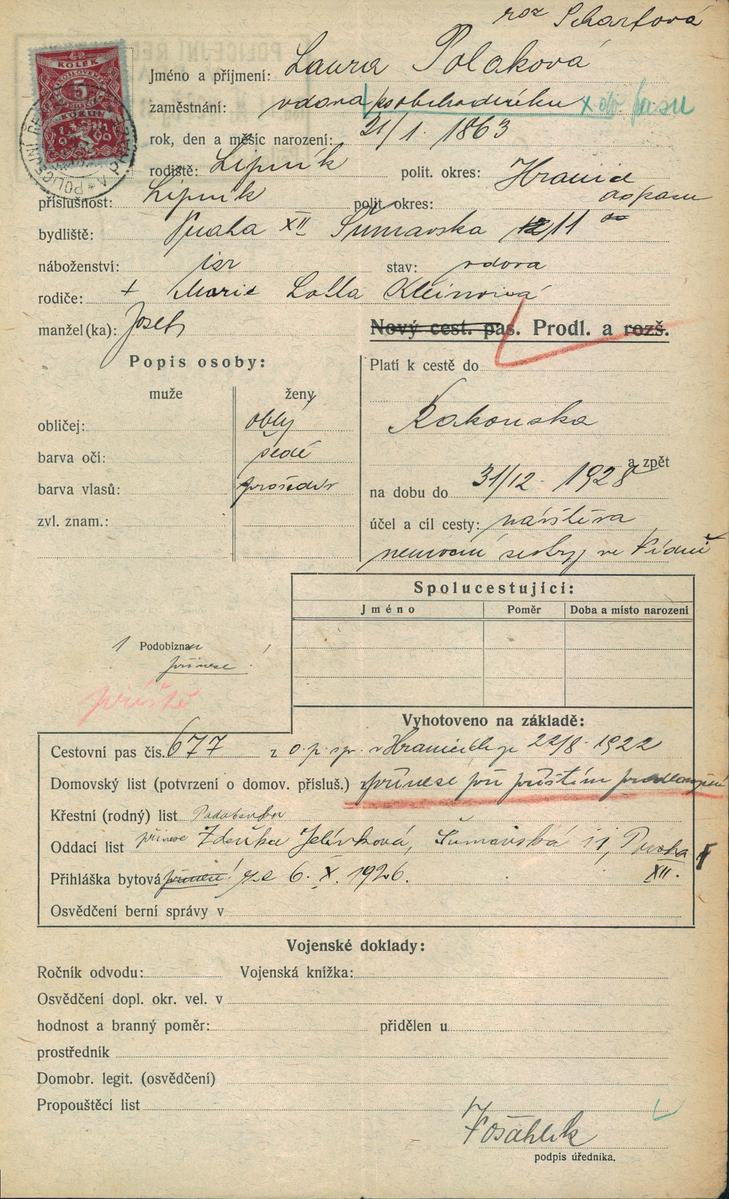 roz Scharfová
KOLEK
5
KORUN
1919
POLICEJNÍ ŘED
Jméno a příjmení: Laura Poláková
zaměstnání: vdova po obchodníku x do pasu
rok, den a měsíc narození: 21/1. 1863
rodiště: Lipník polit. okres: Hranice
příslušnost: Lipník polit. okres: do pasu
bydliště: Praha XII Šumavska 11
náboženství: isr stav: vdova
rodiče: + Marie Kleinová
manžel(ka): Josef
Nový cest. pas. Prodl. a rozš.
Popis osoby:
Platí k cestě do
muže ženy
Rakouska
obličej: oblý
barva očí: šedé
a zpět
barva vlasů: prošediv
na dobu do 31/12. 1928
zvl. znam.:
účel a cíl cesty: návštěva
nemocné sestry ve Vídni
Spolucestující:
Jméno Poměr Doba a místo narození
1 Podobizna
přinese
příště
Vyhotoveno na základě:
Cestovní pas čís. 677 z o. p. spr. v Hranicích 22/8. 1922
Domovský list (potvrzení o domov. přísluš.) přinese při příštím prodloužení
Křestní (rodný) list
Oddací list přinese Zdeňka Jelínková, Šumavská 11, Praha
XII.
Přihláška bytová 6. X. 1926.
Osvědčení berní správy v
Vojenské doklady:
Ročník odvodu: Vojenská knížka:
Osvědčení dopl. okr. vel. v
hodnost a branný poměr: přidělen u
prostředník
Domobr. legit. (osvědčení)
Propouštěcí list
podpis úředníka.